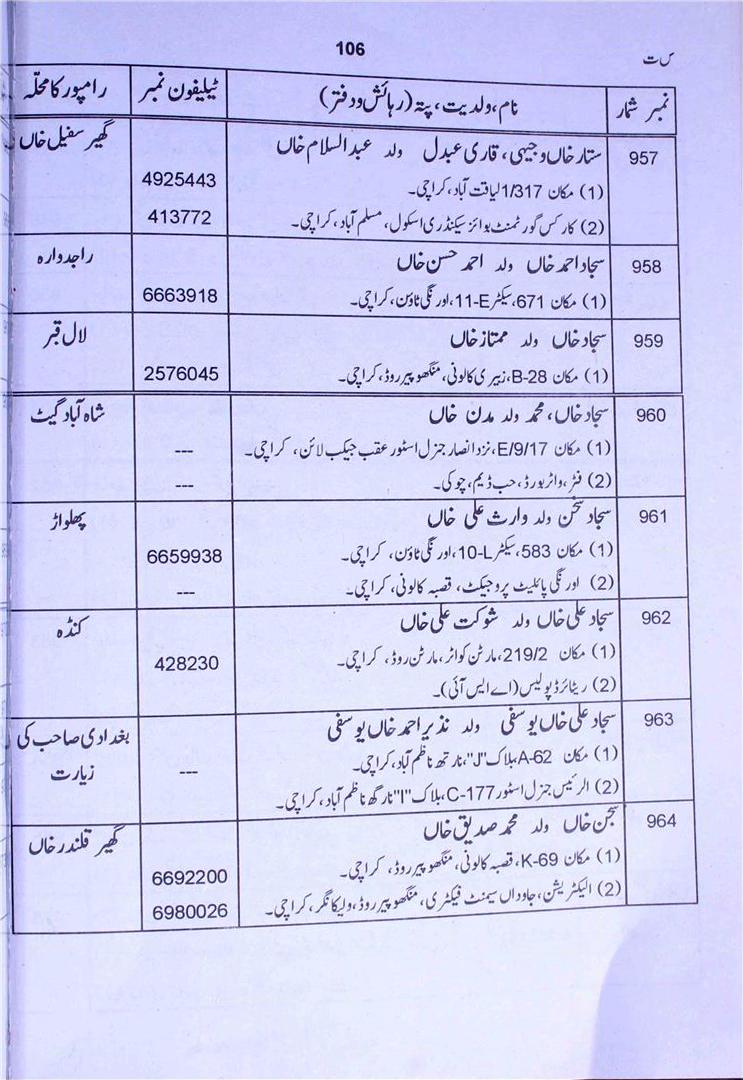 106
س ت
نمبر شمار نام، ولدیت، پتہ (رہائش و دفتر) ٹیلیفون نمبر رامپور کا محلّہ
957 ستار خاں وجیہی، قاری عبدل ولد عبدالسلام خاں گھیر سفیل خاں
(1) مکان 1/317 لیاقت آباد، کراچی۔ 4925443
(2) کارکس گورٹمنٹ بوائز سیکنڈری اسکول، مسلم آباد، کراچی۔ 413772
958 سجاد احمد خاں ولد احمد حسن خاں راجدوارہ
(1) مکان 671، سیکٹر 11-E، اورنگی ٹاؤن، کراچی۔ 6663918
959 سجاد خاں ولد ممتاز خاں لال قبر
(1) مکان B-28، زبیری کالونی، منگھو پیر روڈ، کراچی۔ 2576045
960 سجاد خاں، محمد ولد مدن خاں شاہ آباد گیٹ
(1) مکان E/9/17، نزد انصار جنرل اسٹور عقب جیکب لائن، کراچی۔ ---
(2) فٹر، واٹر بورڈ، حب ڈیم، چوکی۔ ---
961 سجاد سخن ولد وارث علی خاں پھلواڑ
(1) مکان 583، سیکٹر 10-L، اورنگی ٹاؤن، کراچی۔ 6659938
(2) اورنگی پائلیٹ پروجیکٹ، قصبہ کالونی، کراچی۔ ---
962 سجاد علی خاں ولد شوکت علی خاں کنڈہ
(1) مکان 219/2، مارٹن کواٹر، مارٹن روڈ، کراچی۔ 428230
(2) ریٹائرڈ پولیس (اے ایس آئی)۔
963 سجاد علی خاں یوسفی ولد نذیر احمد خاں یوسفی بغدادی صاحب کی
(1) مکان A-62، بلاک "J"، نارتھ ناظم آباد، کراچی۔ --- زیارت
(2) الرئیس جنرل اسٹور C-177، بلاک "I" نارتھ ناظم آباد، کراچی۔
964 سجن خاں ولد محمد صدیق خاں گھیر قلندر خاں
(1) مکان K-69، قصبہ کالونی، منگھو پیر روڈ، کراچی۔ 6692200
(2) الیکٹریشن، جاوداں سیمنٹ فیکٹری، منگھو پیر روڈ، ولیکا نگر، کراچی۔ 6980026